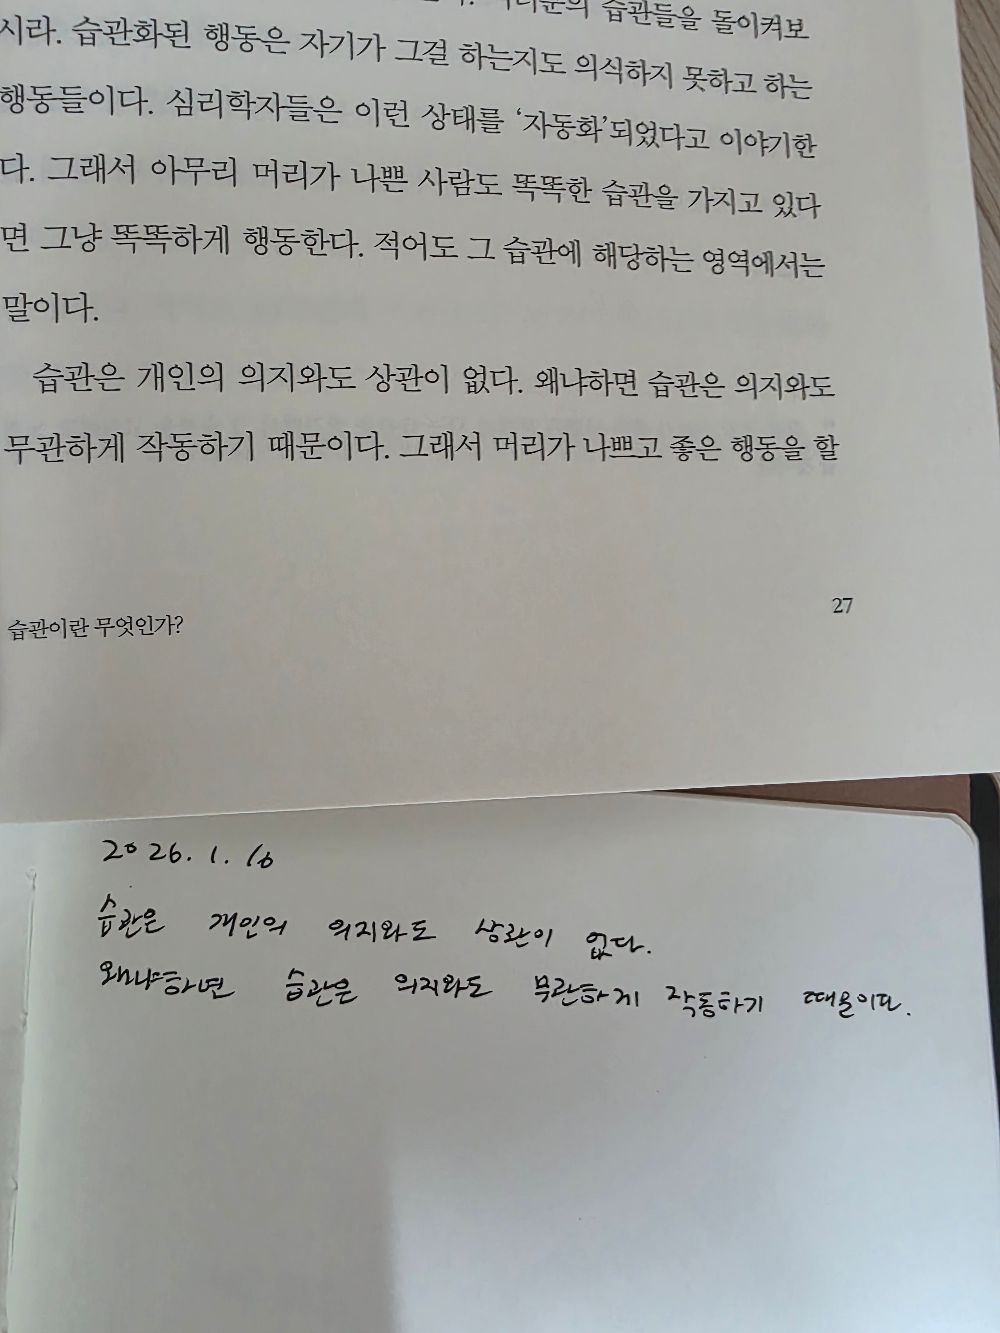 습관들을 돌이켜보
시라. 습관화된 행동은 자기가 그걸 하는지도 의식하지 못하고 하는
행동들이다. 심리학자들은 이런 상태를 ‘자동화’되었다고 이야기한
다. 그래서 아무리 머리가 나쁜 사람도 똑똑한 습관을 가지고 있다
면 그냥 똑똑하게 행동한다. 적어도 그 습관에 해당하는 영역에서는
말이다.
습관은 개인의 의지와도 상관이 없다. 왜냐하면 습관은 의지와도
무관하게 작동하기 때문이다. 그래서 머리가 나쁘고 좋은 행동을 할
습관이란 무엇인가?
27
2026. 1. 16
습관은 개인의 의지와도 상관이 없다.
왜냐하면 습관은 의지와도 무관하게 작동하기 때문이다.